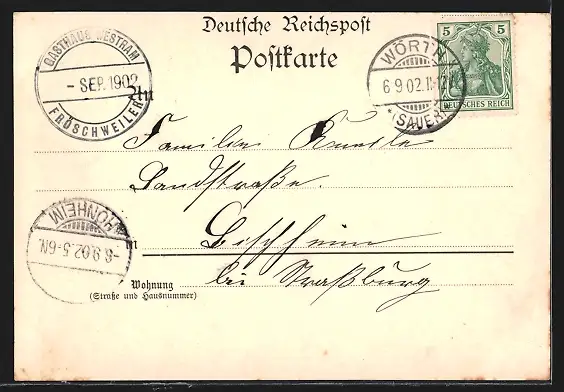 Deutsche Reichspost
Postkarte
GASTHAUS WESTRAM
- SEP. 1902
FRÖSCHWEILER
WÖRTH
6 9 02. 11-12
* (SAUER)
5 5
DEUTSCHES REICH
An
Familie
Landstraße.
HÖNHEIM
-6.9.02.5-6N.
in
Bischheim
bei Straßburg
Wohnung
(Straße und Hausnummer)